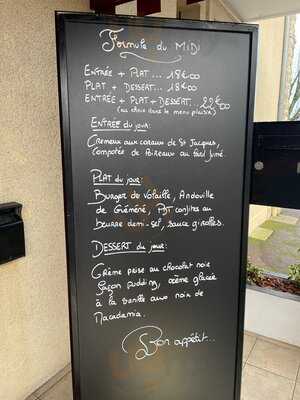 Formule du MIDI
ENTRÉE + PLAT... 18€00
PLAT + DESSERT... 18€00
ENTRÉE + PLAT + DESSERT... 22€00
(au choix dans le menu plaisir)
ENTRÉE du jour:
Crémeux aux coraux de St Jacques,
Compotée de Poireaux au thé fumé.
PLAT du jour:
Burger de Volaille, Andouille
de Guémené, PDT confites au
beurre demi-sel, sauce girolles.
DESSERT du jour:
Crème prise au chocolat noir
façon pudding, crème glacée
à la vanille aux noix de
Macadamia.
Bon appétit...